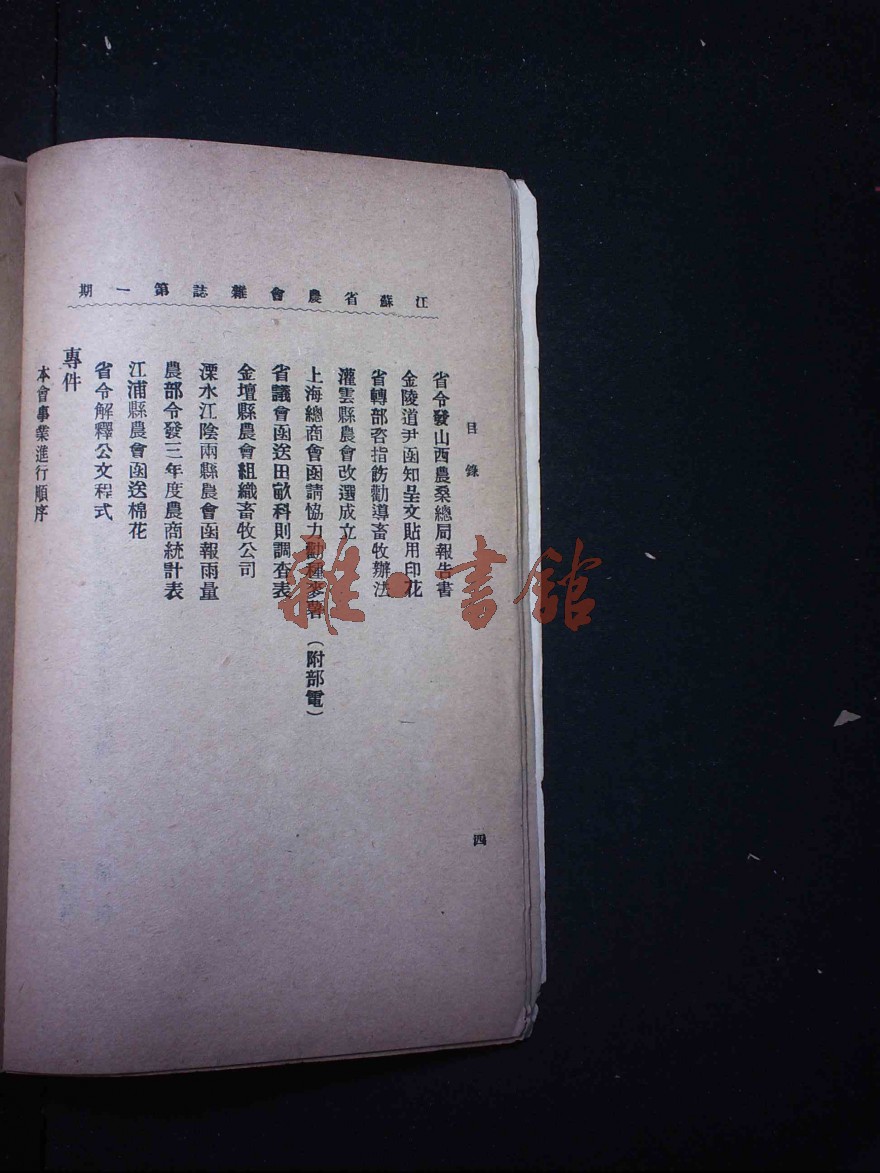 江蘇省農會雜誌第一期
目錄
四
省令發山西農桑總局報告書
金陵道尹函知呈文貼用印花
省轉部咨指飭勸導畜牧辦法
灌雲縣農會改選成立
上海總商會函請協力勸種麥薯(附部電)
省議會函送田畝科則調查表
金壇縣農會組織畜牧公司
溧水江陰兩縣農會函報雨量
農部令發三年度農商統計表
江浦縣農會函送棉花
省令解釋公文程式
專件
本會事業進行順序
雜·書館